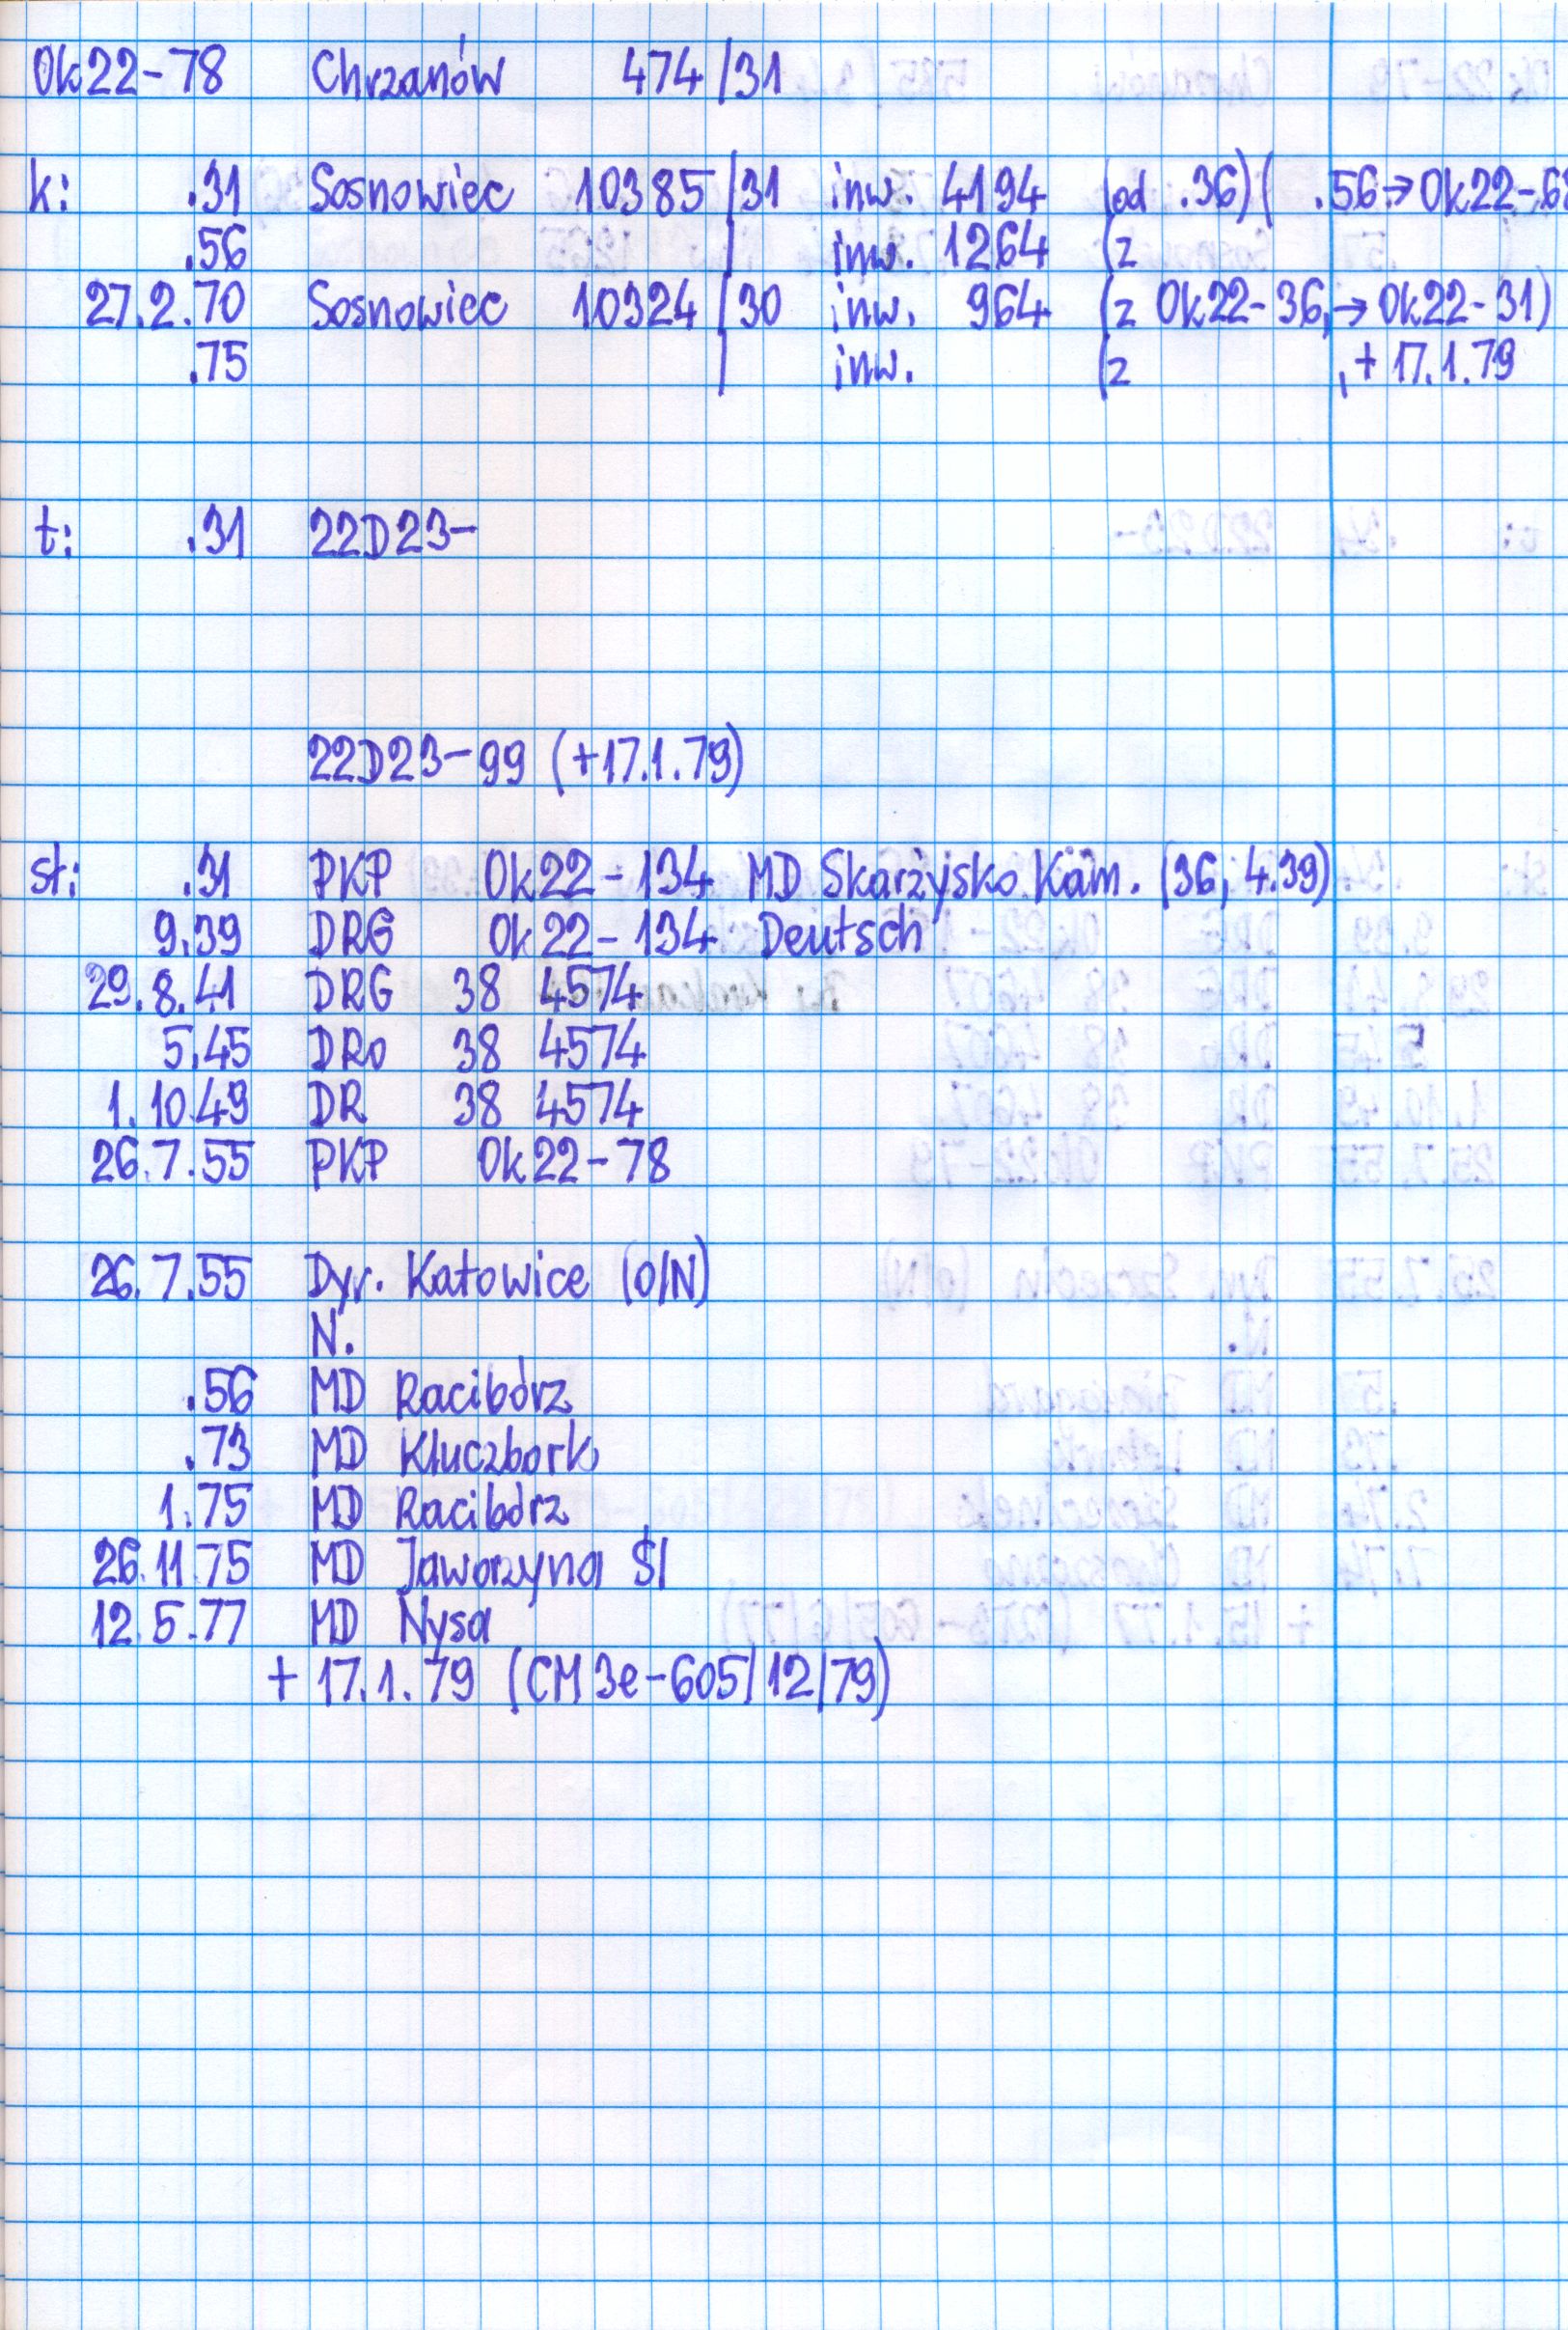 Ok22-78 Chrzanów 474/31
k: .31 Sosnowiec 10385/31 inw. 4194 (od .36)( .56→Ok22-68
.56 / inw. 1264 (z
27.2.70 Sosnowiec 10324/30 inw. 964 (z Ok22-36,→Ok22-31)
.75 / inw. (z ,+17.1.79
t: .31 22D23-
22D23-99 (+17.1.79)
st: .31 PKP Ok22-134 MD Skarżysko Kam. (36, 4.39)
9.39 DRG Ok22-134 Deutsch
29.8.41 DRG 38 4574
5.45 DRo 38 4574
1.10.49 DR 38 4574
26.7.55 PKP Ok22-78
26.7.55 Dyr. Katowice (o/N)
N.
.56 MD Racibórz
.73 MD Kluczbork
1.75 MD Racibórz
26.11.75 MD Jaworzyna Śl
12.5.77 MD Nysa
+ 17.1.79 (CM3e-605/12/79)